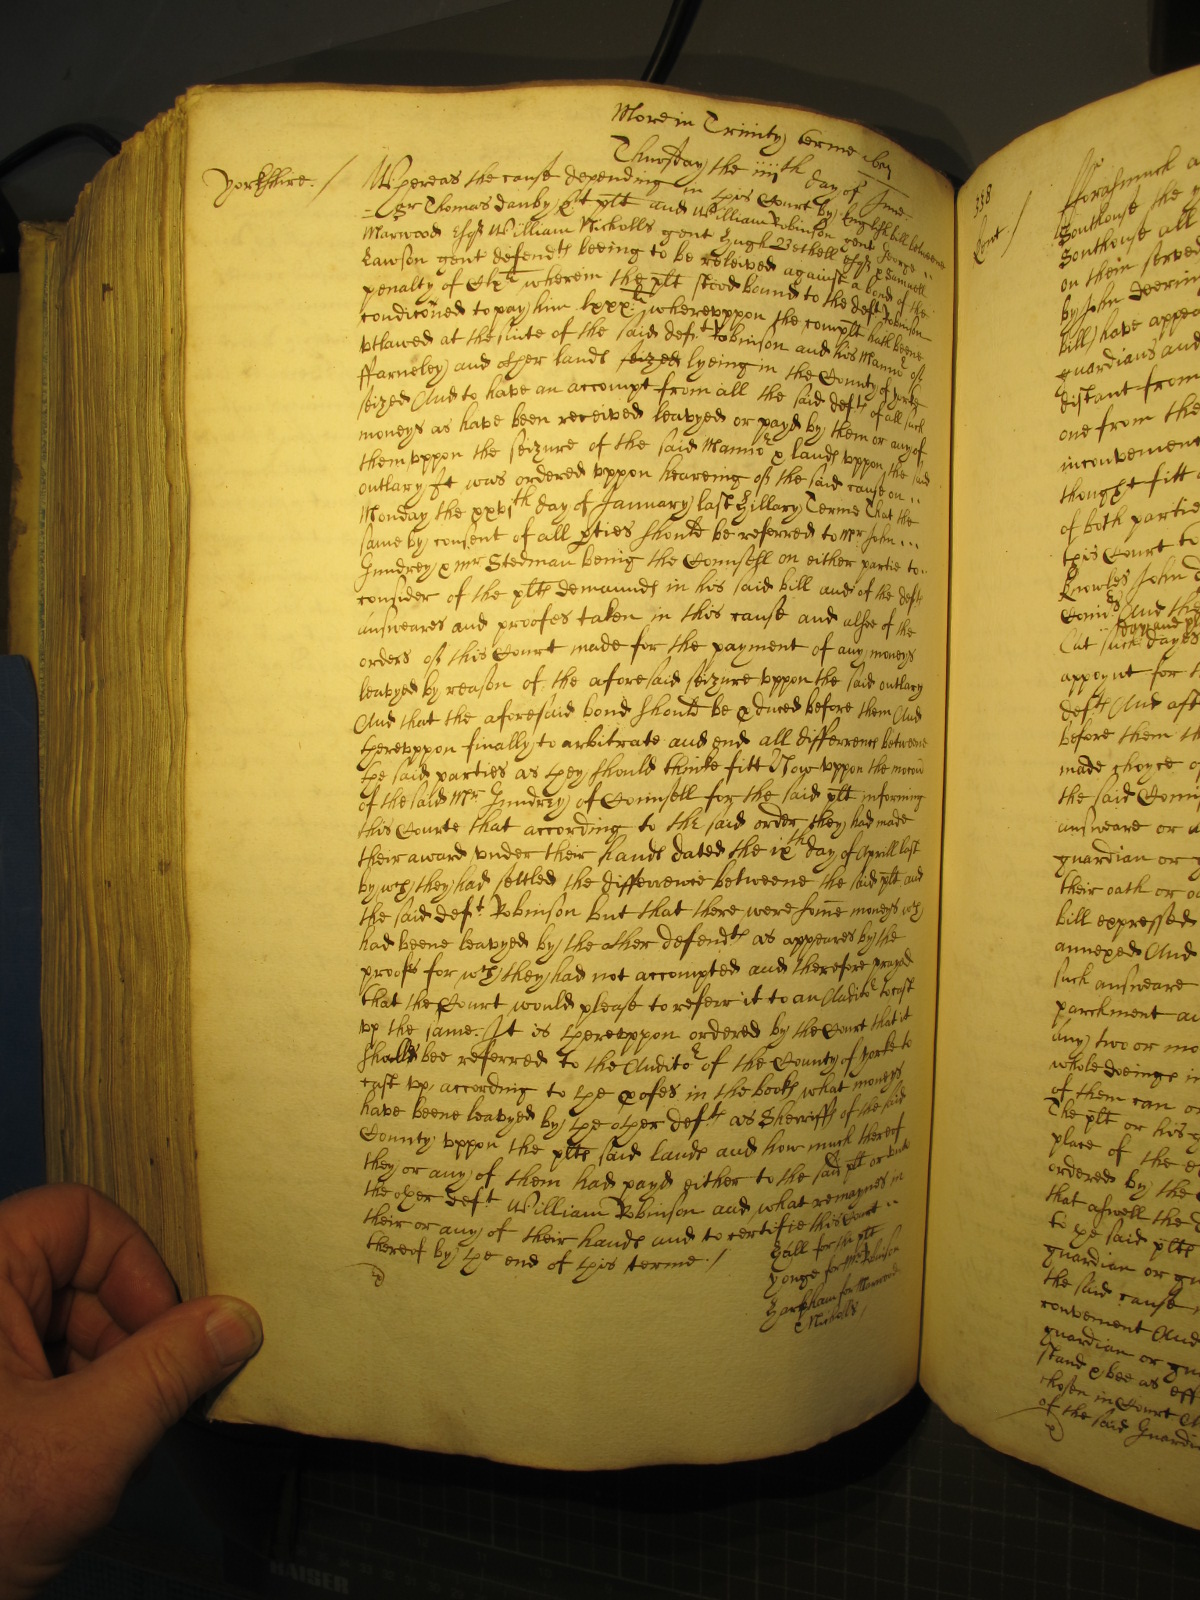 More in Trinity terme
Thursday the iiijth day of June
Yorkshire. /
Whereas the cause depending in this Court by English bill betweene
Sr Thomas Danby Kt plt and William Robinson gent George
Marwood Esqr William Nicholls gent Hugh Bethell Esqr & Samuell
Lawson gent defendts beeing to be releived against a bond of the
penalty of wherein the plt stood bound to the deft Robinson
condiconed to pay him lxxxli whereuppon the complt hath beene
utlawed at the suite of the said deft Robinson and his Mannor of
ffarneley and other lands seized lyeing in the County of Yorke
seized And to have an accompt from all the said defts of all such
moneys as have been received leavyed or payd by them or any of
them uppon the seizure of the said Mannor & lands uppon the said
outlary It was ordered uppon heareing of the said cause on
Monday the xxvjth day of January last Hillary Terme That the
same by consent of all pties should be referred to Mr John
& Mr Stedman being the Counsell on either partie to
consider of the plts demaunds in his said bill and of the defts
answeares and proofes taken in this cause and alsoe of the
orders of this Court made for the payment of any moneys
leavyed by reason of the aforesaid seizure uppon the said outlary
And that the aforesaid bond should be pduced before them And
thereuppon finally to arbitrate and end all differrences betweene
the said parties as they should thinke fitt Now uppon the mocon
of the said Mr of Counsell for the said plt informing
this Courte that according to the said order they had made
their award under their hands dated the ixth day of Aprill last
by wch they had settled the difference betweene the said plt and
the said deft Robinson but that there were some moneys wch
had beene leavyed by the other defendts as appeares by the
proofs for wch they had not accompted and therefore prayd
that the Court would please to referr it to an Auditor to cast
up the same. It is thereuppon ordered by the Court that it
should bee referred to the Auditor of the County of Yorke to
cast up according to the pofes in the books what moneys
have beene leavyed by the other defts as Sheriffs of the said
County uppon the plts said lands and how much thereof
they or any of them had payd either to the said plt or unto
the other deft William Robinson and what remaynes in
their or any of their hands and to certifie this Court
thereof by the end of this terme. /
Hall for the plt
Yonge for Mr Robinson
for Marwood
& Nicholls /
338
Kent. /
fforasmuch a
Southouse the
Southouse all
on them served
by John Deering
bill) have appea
guardians and
distant from
one from the
inconvenient
thought fitt
of both partie
this Court to
Knowles John
And th
appoynt for
defts And aft
before them th
made choyce o
the said Comi
answeare or
guardian or g
their oath or
bill expressed
annexed And
such answeare
parchment an
any two or mo
whole doeings in
of them can or
The plt or his
place of the
ordered by the
that aswell the
to the said plts
guardian or gu
the said cause
convenient And
guardian or gu
stand & bee as eff
chosen in Court
of the said Guardi